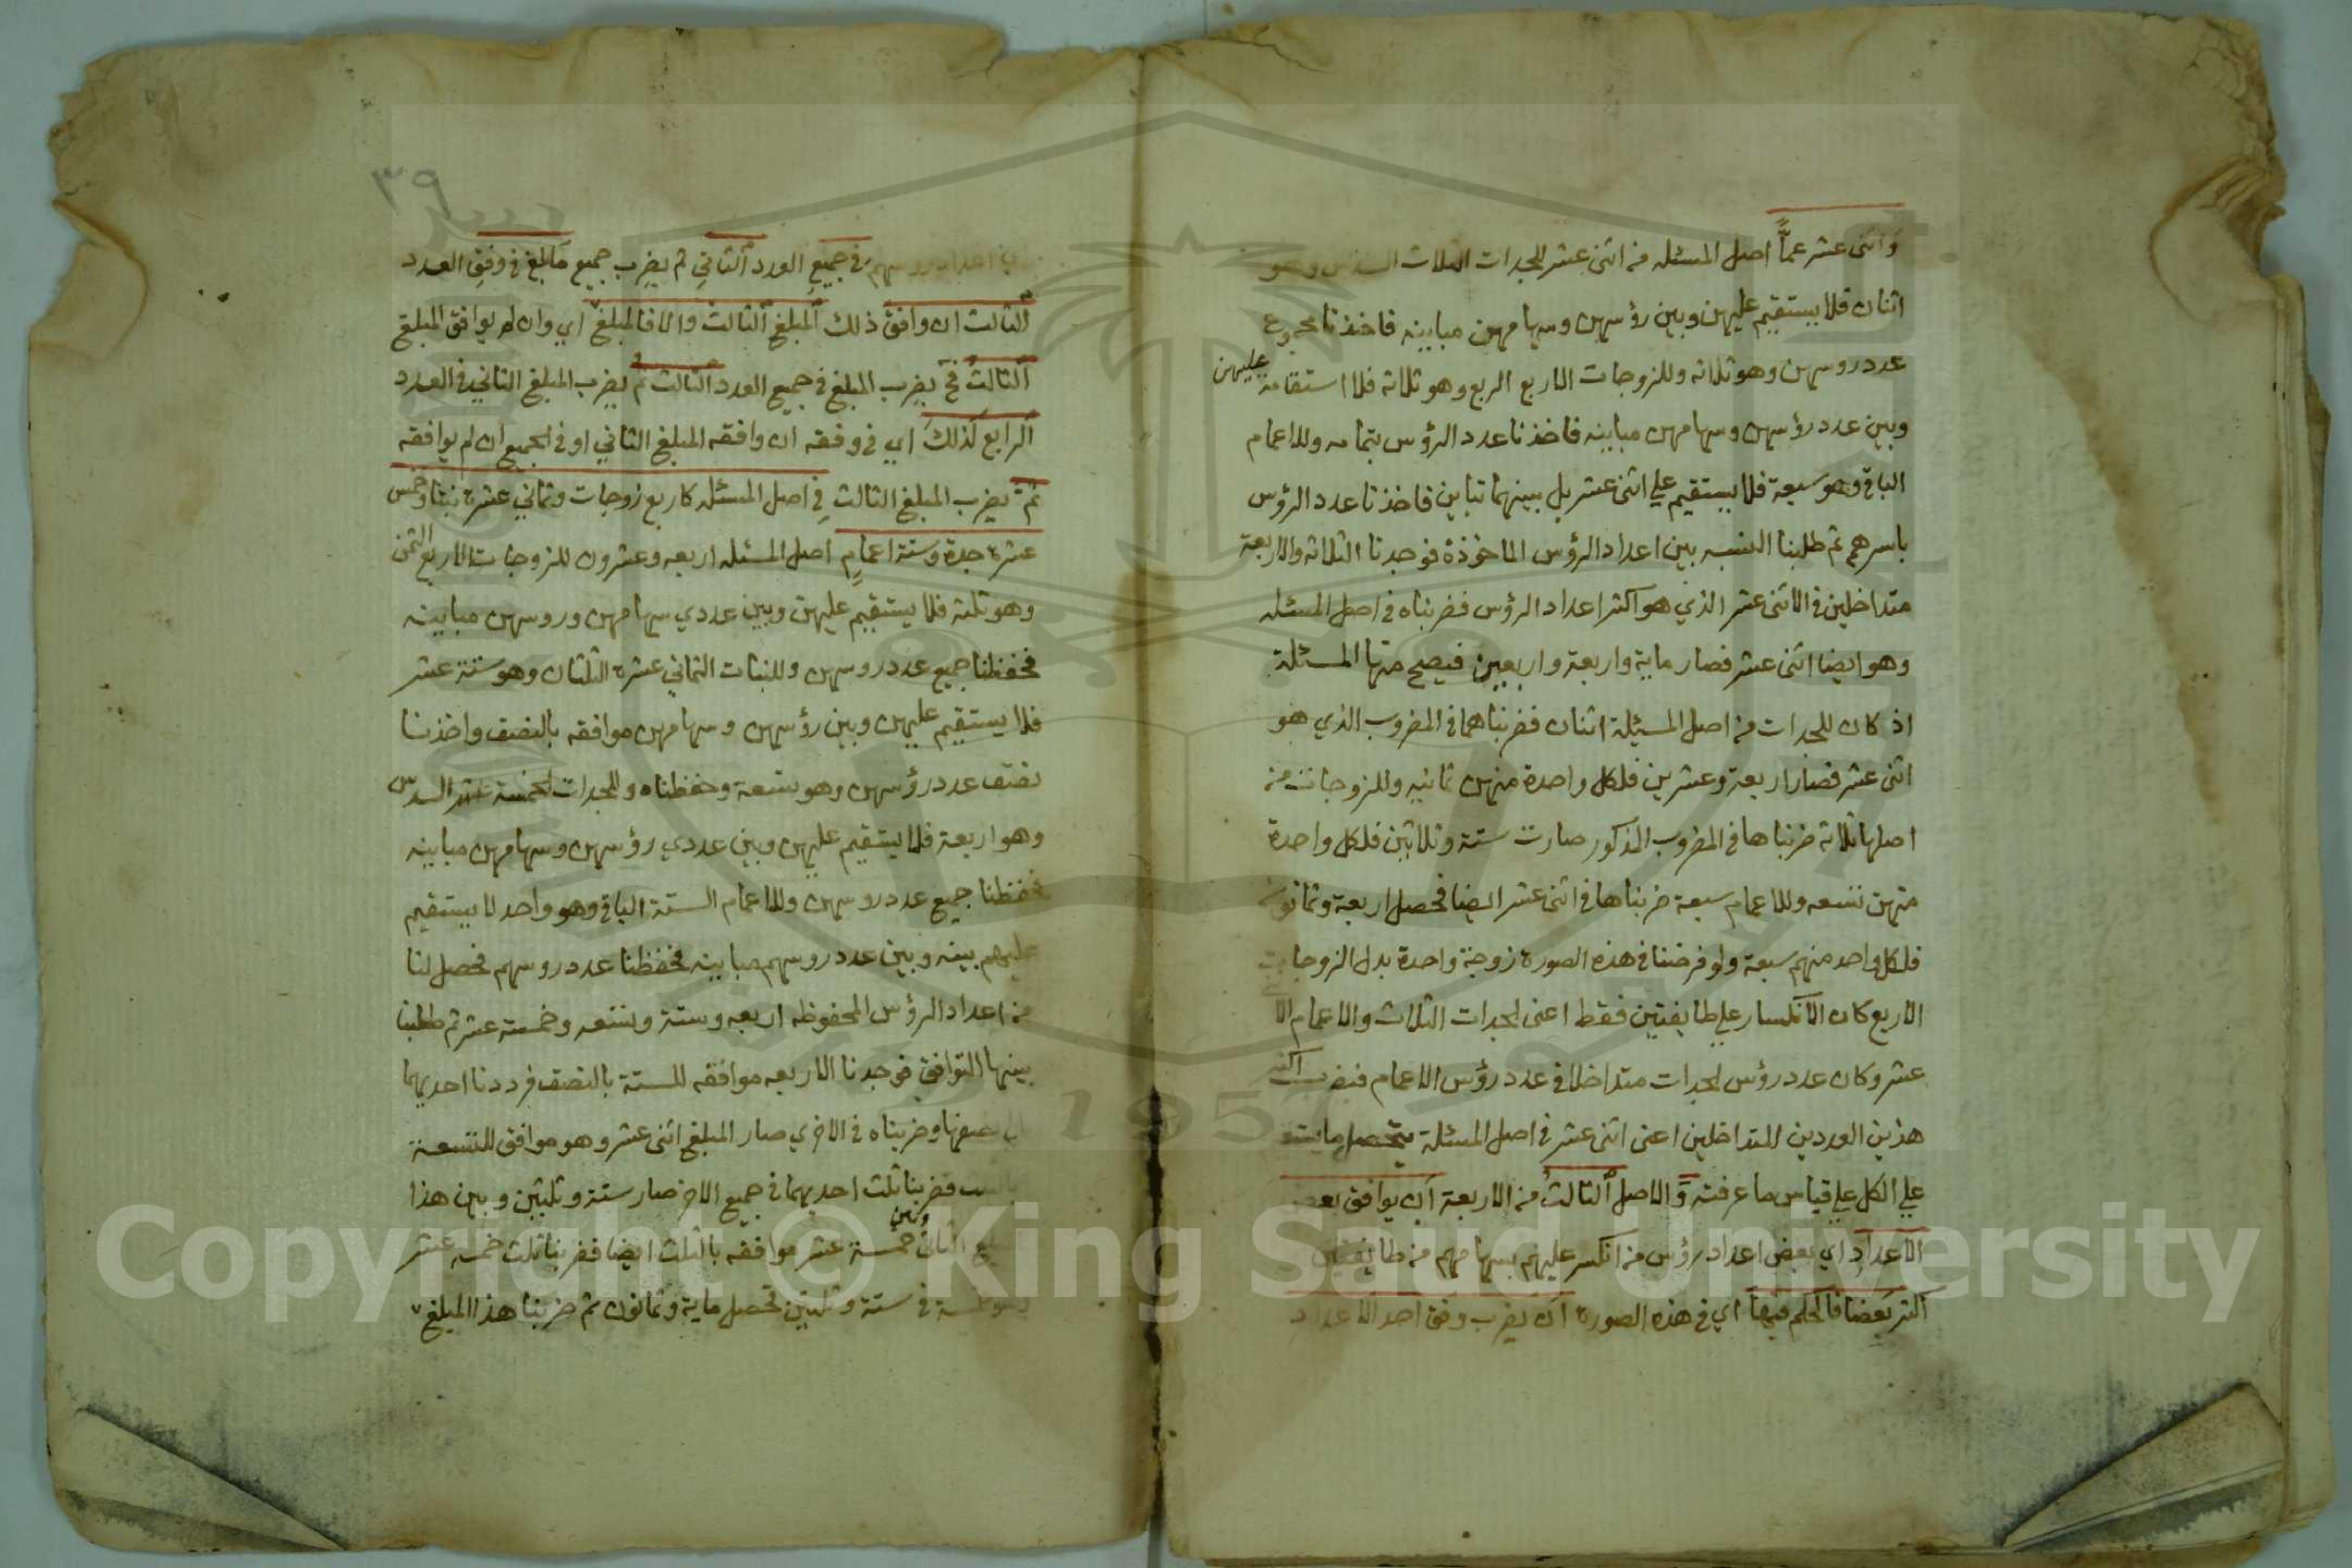 واثنى عشر عما اصل المسئله من اثنى عشر للجدات الثلاث السدس وهو
اثنان فلا يستقيم عليهن وبين رؤسهن وسهامهن مباينه فاخذنا مجموع
عدد روسهن وهو ثلاثه وللزوجات الاربع الربع وهو ثلاثة فلا استقامة عليهن
وبين عدد رؤسهن وسهامهن مباينه فاخذنا عدد الرؤس بتمامه وللاعمام
الباقي وهو سبعة فلا يستقيم علي اثنى عشر بل بينهما تباين فاخذنا عدد الرؤس
باسرهم ثم طلبنا النسبه بين اعداد الرؤس الماخوذة فوجدنا الثلاثه والاربعة
متداخلين في الاثنى عشر الذي هو اكثر اعداد الرؤس فضربناه في اصل المسئله
وهو ايضا اثنى عشر فصار ماية واربعة واربعين فيصح منها المسئلة
اذ كان للجدات من اصل المسئلة اثنان فضربناهما في المضروب الذي هو
اثنى عشر فصار اربعة وعشرين فلكل واحدة منهن ثمانيه وللزوجات من
اصلها ثلاثه ضربناها في المضروب المذكور صارت ستة وثلاثين فلكل واحدة
منهن تسعه وللاعمام سبعة ضربناها في اثنى عشر ايضا فحصل اربعة وثمانون
فلكل واحد منهم سبعة ولو فرضنا في هذه الصورة زوجة واحدة بدل الزوجات
الاربع كان الانكسار علي طايفتين فقط اعنى الجدات الثلاث والاعمام الا
عشر وكان عدد رؤس الجدات متداخلا في عدد رؤس الاعمام فيضرب اكثر
هذين العددين المتداخلين اعنى اثنى عشر في اصل المسئلة فيحصل ما يستقـ
علي الكل علي قياس ما عرفته و الاصل الثالث من الاربعة ان يوافق بعض
الاعداد اي بعض اعداد رؤس من انكسر عليهم سهامهم من طايفتين
اكثر بعضا فالحكم فيها اي في هذه الصورة ان يضرب وفق احد الاعداد
٣٩
اعداد روسهم في جميع العدد الثاني ثم يضرب جميع مابلغ في وفق العدد
الثالث ان وافق ذلك المبلغ الثالث والا فالمبلغ اي وان لم يوافق المبلغ
الثالث فح يضرب المبلغ في جميع العدد الثالث ثم يضرب المبلغ الثاني في العدد
الرابع كذلك اي في وفقه ان وافقه المبلغ الثاني او في الجميع ان لم يوافقه
ثم يضرب المبلغ الثالث في اصل المسئله كاربع زوجات وثماني عشرة بنتا وخمس
عشرة جدة وستة اعمام اصل المسئله اربعه وعشرون للزوجات الاربع الثمن
وهو ثلثة فلا يستقيم عليهن وبين عددي سهامهن وروسهن مباينه
فحفظنا جميع عدد روسهن وللبنات الثماني عشرة الثلثان وهو ستة عشر
فلا يستقيم عليهن وبين رؤسهن وسهامهن موافقه بالنصف واخذنا
نصف عدد رؤسهن وهو تسعة وحفظناه وللجدات الخمسة عشر السدس
وهو اربعة فلا يستقيم عليهن وبين عددي رؤسهن وسهامهن مباينه
فحفظنا جميع عدد روسهن وللاعمام الستة الباقي وهو واحد لا يستقيم
عليهم بينه وبين عدد روسهم مباينه فحفظنا عدد روسهم فحصل لنا
من اعداد الرؤس المحفوظه اربعه وستة وتسعه وخمسة عشر ثم طلبنا
بينها التوافق فوجدنا الاربعه موافقه للستة بالنصف فرددنا احديهما
نصفها وضربناه في الاخري صار المبلغ اثنى عشر وهو موافق للتسعة
بالثلث فضربنا ثلث احديهما في جميع الاخر صار ستة وثلثين وبين هذا
المبلغ الثاني وبين خمسة عشر موافقه بالثلث ايضا فضربنا ثلث خمسه عشر
وهو خمسة في ستة وثلثين تحصل ماية وثمانون ثم ضربنا هذا المبلغ
Copyright © King Saud University
1957